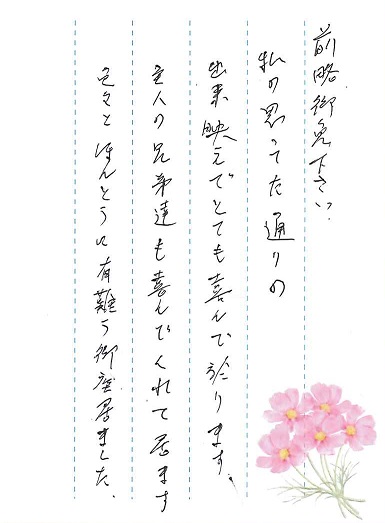 前略御免下さい。
私の思ってた通りの
出来映えでとても喜んで於ります。
主人の兄弟達も喜んでくれて居ます
色々とほんとうに有難う御座居ました。